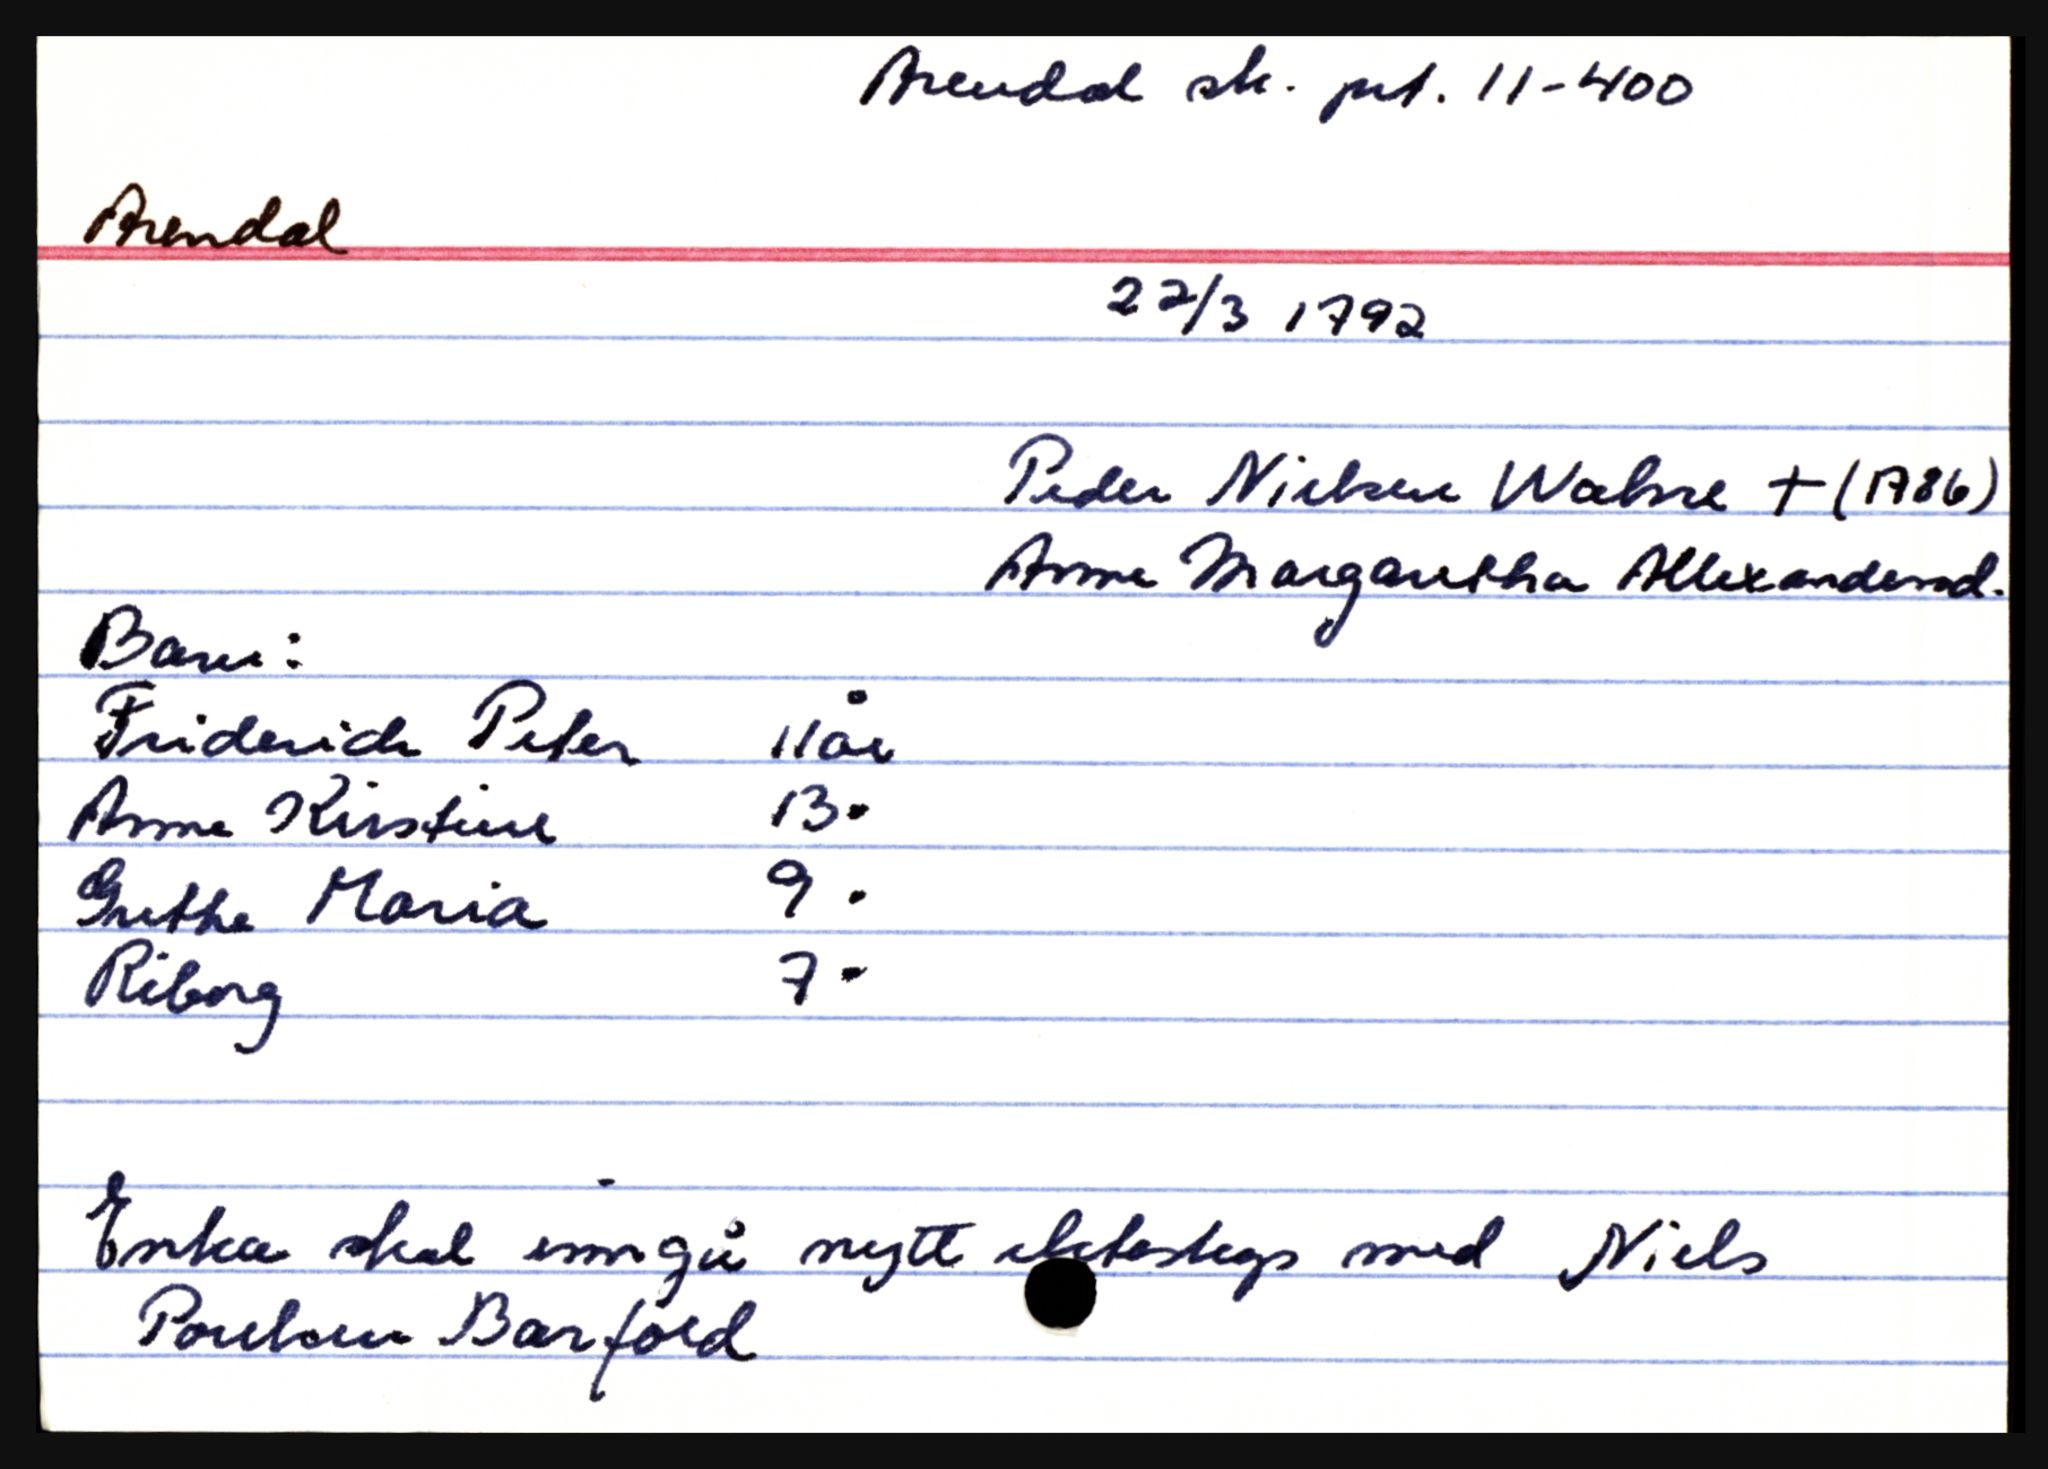 Arendal sk. prt. 11-400
Arendal
22/3 1792
Peder Nielsen Walsøe + (1786)
Anne Margaretha Allexandersd.
Barn:
Friderich Peter 11 år
Anne Kirstine 13 "
Grethe Maria 9 "
Riborg 7 "
Enka skal inngå nytt ekteskap med Niels
Poulsen Barfoed